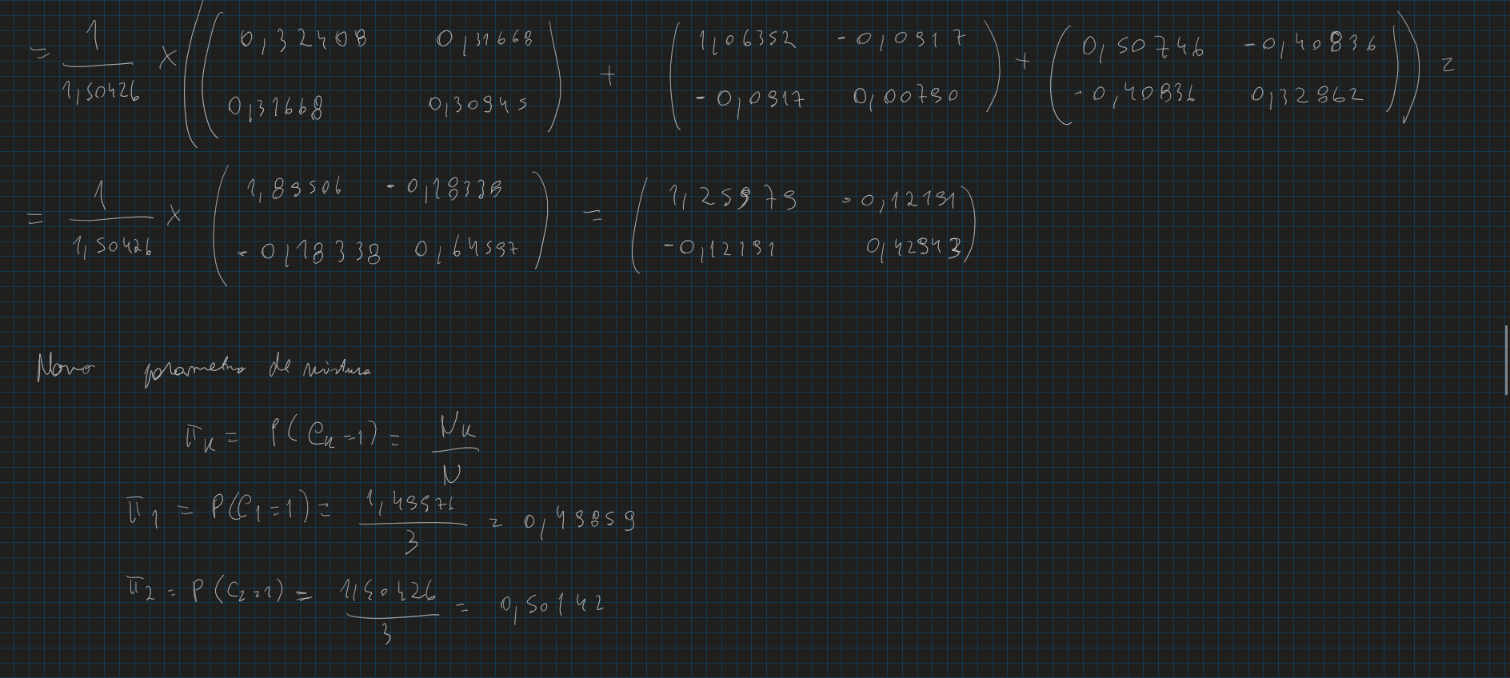 = 1/1,50426 × ( ( 0,32408 0,31668 ; 0,31668 0,30945 ) + ( 1,06352 -0,0917 ; -0,0917 0,00790 ) + ( 0,50746 -0,40836 ; -0,40836 0,32862 ) ) =
= 1/1,50426 × ( 1,89506 -0,18338 ; -0,18338 0,64597 ) = ( 1,25979 -0,12191 ; -0,12191 0,42943 )
Novo parametro de mistura
π_k = P(C_k=1) = N_k/N
π_1 = P(C_1=1) = 1,49576/3 = 0,49859
π_2 = P(C_2=1) = 1,50426/3 = 0,50142